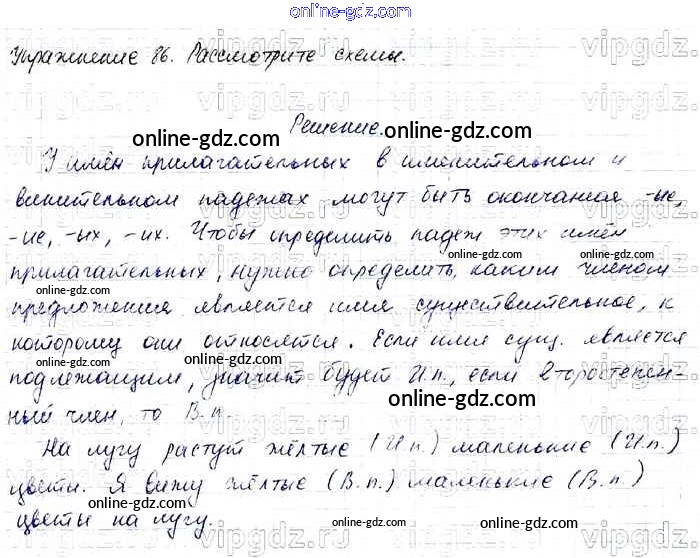 online-gdz.com
Упражнение 86. Рассмотрите схемы.
Решение.
online-gdz.com
У имён прилагательных в именительном и
винительном падежах могут быть окончания -ые,
-ие, -ых, -их. Чтобы определить падеж этих имён
online-gdz.com online-gdz.com
прилагательных, нужно определить, каким членом
предложения является имя существительное, к
которому они относятся. Если имя сущ. является
online-gdz.com online-gdz.com
подлежащим, значит будет И.п., если второстепен-
online-gdz.com
ный член, то В.п.
На лугу растут жёлтые (И.п.) маленькие (И.п.)
online-gdz.com
цветы. Я вижу жёлтые (В.п.) маленькие (В.п.)
online-gdz.com
цветы на лугу.
online-gdz.com
online-gdz.com